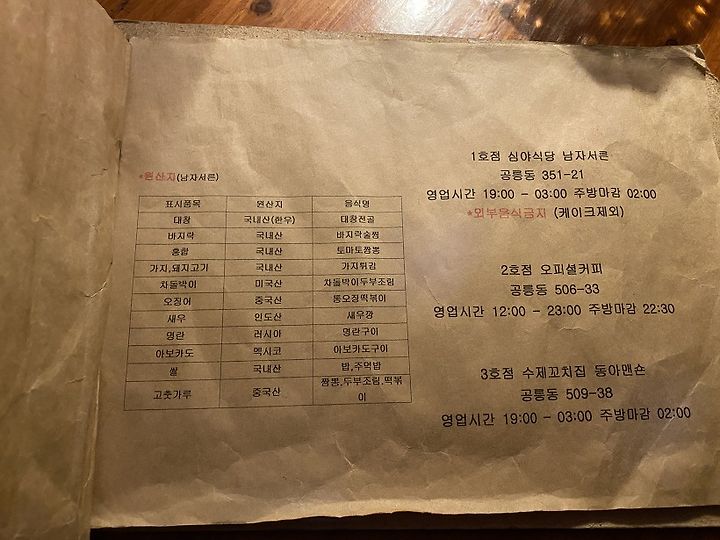 *원산지(남자서른)
표시품목 원산지 음식명
대창 국내산(한우) 대창전골
바지락 국내산 바지락술찜
홍합 국내산 토마토짬뽕
가지,돼지고기 국내산 가지튀김
차돌박이 미국산 차돌박이두부조림
오징어 중국산 통오징떡볶이
새우 인도산 새우깡
명란 러시아 명란구이
아보카도 멕시코 아보카도구이
쌀 국내산 밥,주먹밥
고춧가루 중국산 짬뽕,두부조림,떡볶
이
1호점 심야식당 남자서른
공릉동 351-21
영업시간 19:00 - 03:00 주방마감 02:00
*외부음식금지 (케이크제외)
2호점 오피셜커피
공릉동 506-33
영업시간 12:00 - 23:00 주방마감 22:30
3호점 수제꼬치집 동아맨숀
공릉동 509-38
영업시간 19:00 - 03:00 주방마감 02:00